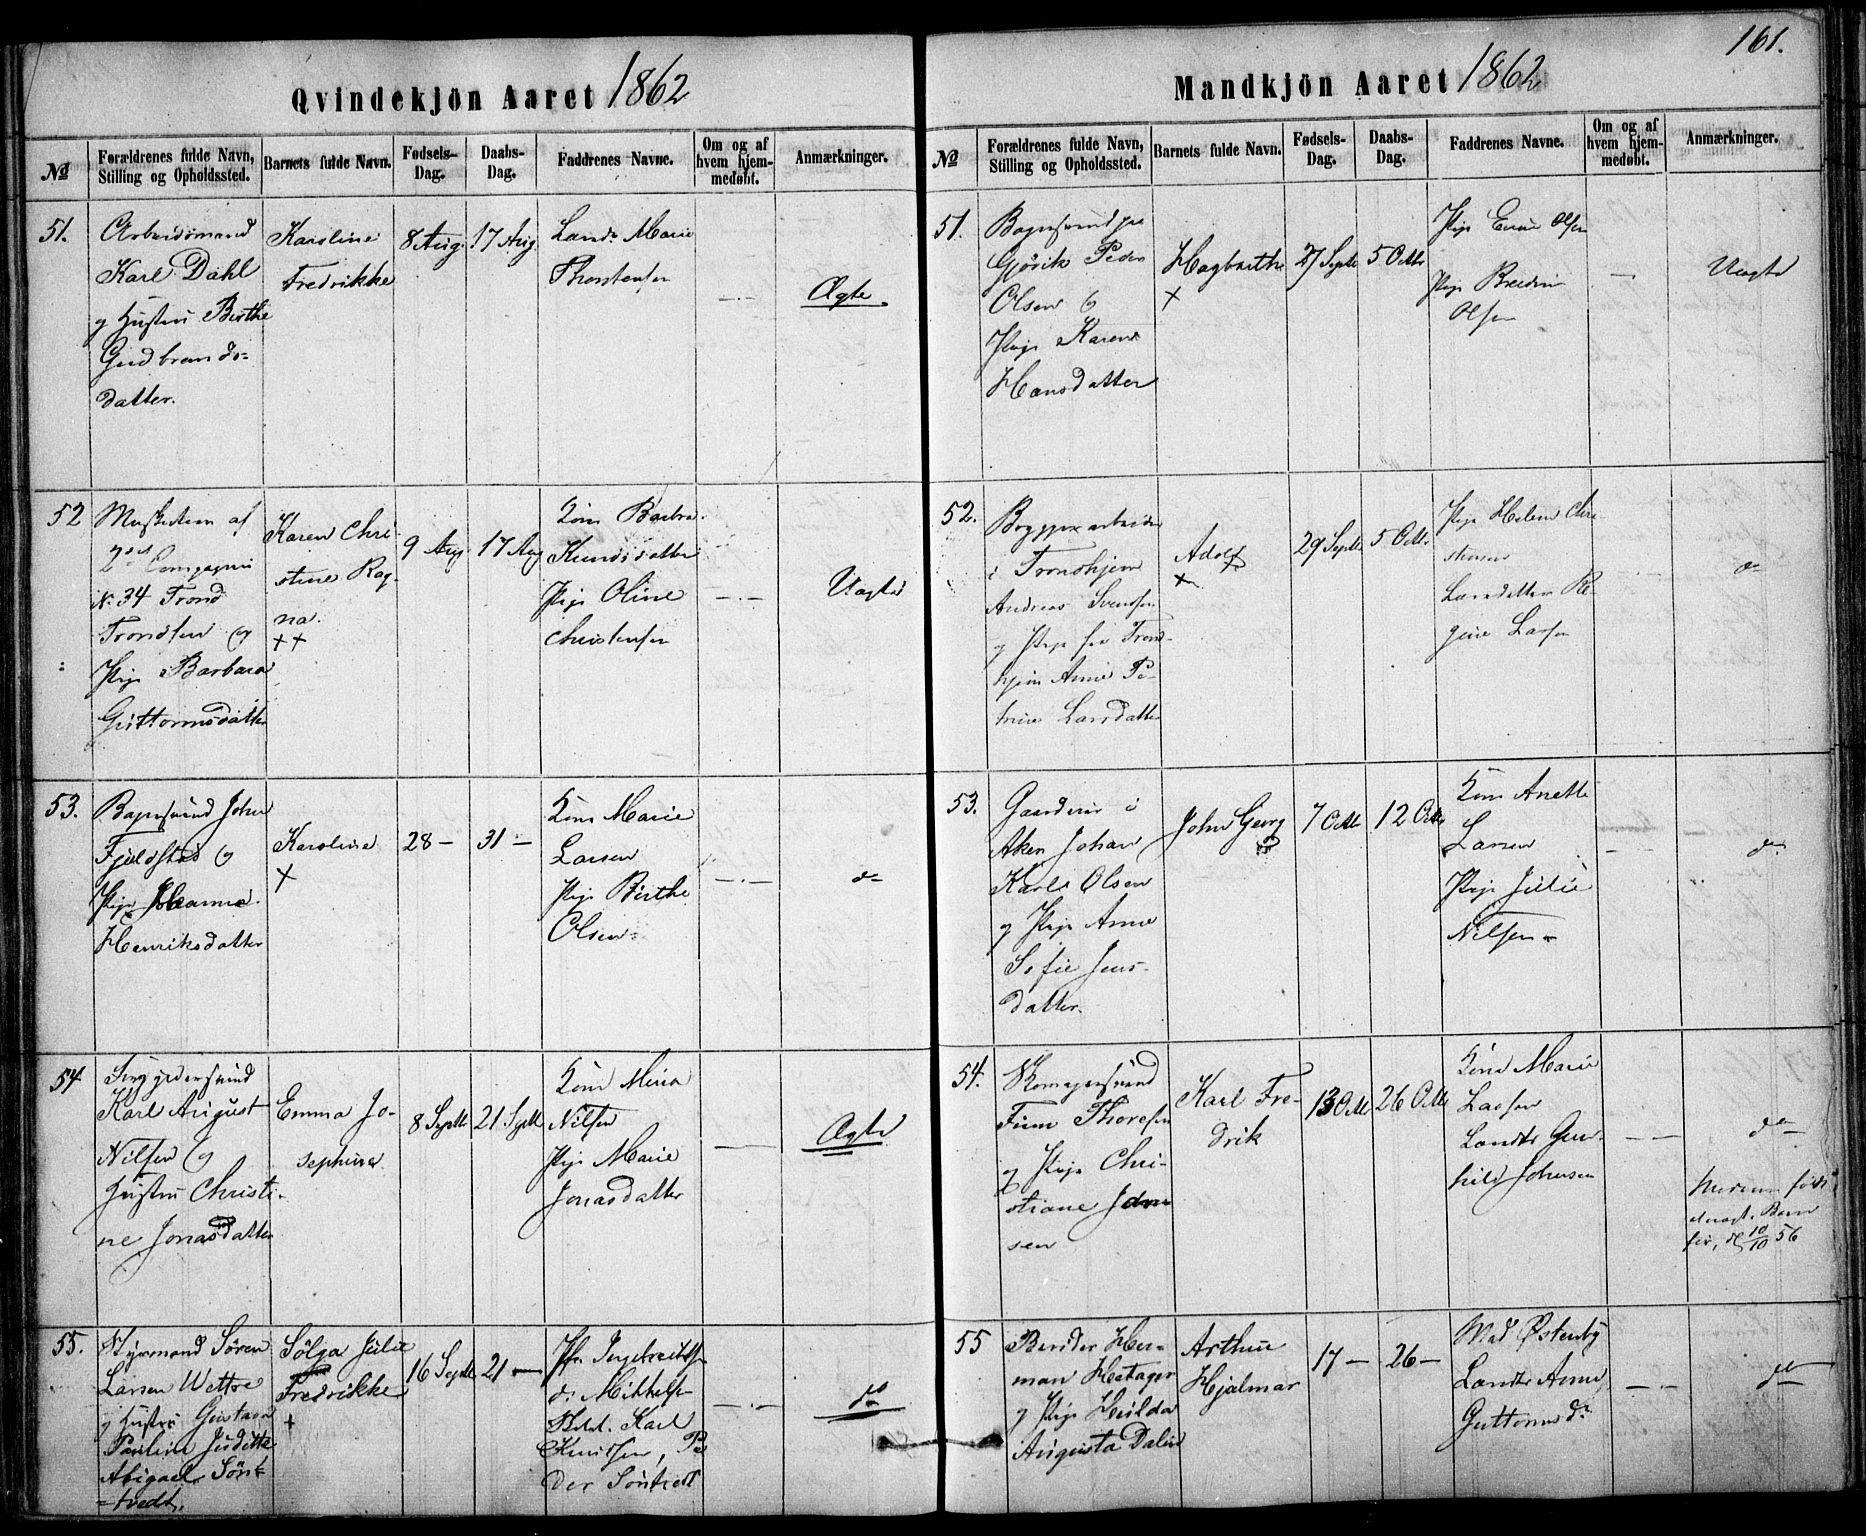 161.
Qvindekjön Aaret 1862
№
Forældrenes fulde Navn, Stilling og Opholdssted.
Barnets fulde Navn.
Fødsels-Dag.
Daabs-Dag.
Faddrenes Navne.
Om og af hvem hjem-medøbt.
Anmærkninger.
51.
Arbeidsmand
Karl Dahl
og Hustru Birthe
Gudbrands-
datter.
Karoline
Fredrikke
8 Aug.
17 Aug.
Marie
Thorstensen
Ægte
52
af
2den Compagni
No 34 Trond
Trondsen og
Pige Barbara
Guttormsdatter
Karen Chri-
stine Rag-
na.
++
9 Aug
17 Aug
Kone Barbra
Knudsdatter
Pige Oline
Christensen
Uægte
53.
Bagersvend Johan
Fjeldstad og
Pige
Henriksdatter
Karoline
+
28 –
31 –
Kone Marie
Larsen
Pige Birthe
Olsen
do
54
Karl August
Nilsen og
Hustru Christi-
ne Jonasdatter
Emma Jo-
sephine
8 Septb
21 Septb
Kone
Nilsen
Pige Marie
Jonasdatter
Ægte
55.
Styrmand Sören
Larsen Wettre
og Hustru Gustava
Pauline Judithe
Abigael Sönt-
tvedt.
Sölja Julie
Fredrikke
+
16 Septb
21 –
Karl
Knudsen, Pe
der Söntvedt
do
Mandkjön Aaret 1862
№
Forældrenes fulde Navn, Stilling og Opholdssted.
Barnets fulde Navn.
Fødsels-Dag.
Daabs-Dag.
Faddrenes Navne.
Om og af hvem hjem-medøbt.
Anmærkninger.
51.
Bagersvend paa
Gjövik Peder
Olsen og
Pige Karen
Hansdatter
Hagbarth
+
27 Septb
5 Octbr
Pige Olsen
Pige
Olsen
Uægte
52.
Bryggearbeider
i Trondhjem
Andreas Svensen
og Pige fra Trond-
hjem Anne Pe-
trine Larsdatter
Adolf
+
29 Septb
5 Octbr
Pige Helene Chri-
stensen
Re-
gine Larsen
do
53.
Gaardeier i
Aker Johan
Karl Olsen
og Pige Anne
Sofie Jens-
datter.
John Georg
7 Octb
12 Octbr
Kone Anette
Larsen
Pige Julie
Nilsen
do
54.
Skomagersvend
Finn Thoresen
og Pige Chri-
stiane
sen
Karl Fre-
drik
13 Octb
26 Octb
Kone Marie
Larsen
Gun-
hild Johnsen
do
Moderen födt
uægt. Barn
før, d 10/10 56
55
Her-
man Hetager
og Pige Hilda
Augusta Dalin
Arthur
Hjalmar
17 –
26 –
Mad Østenby
Anne
Guttorms dr
do